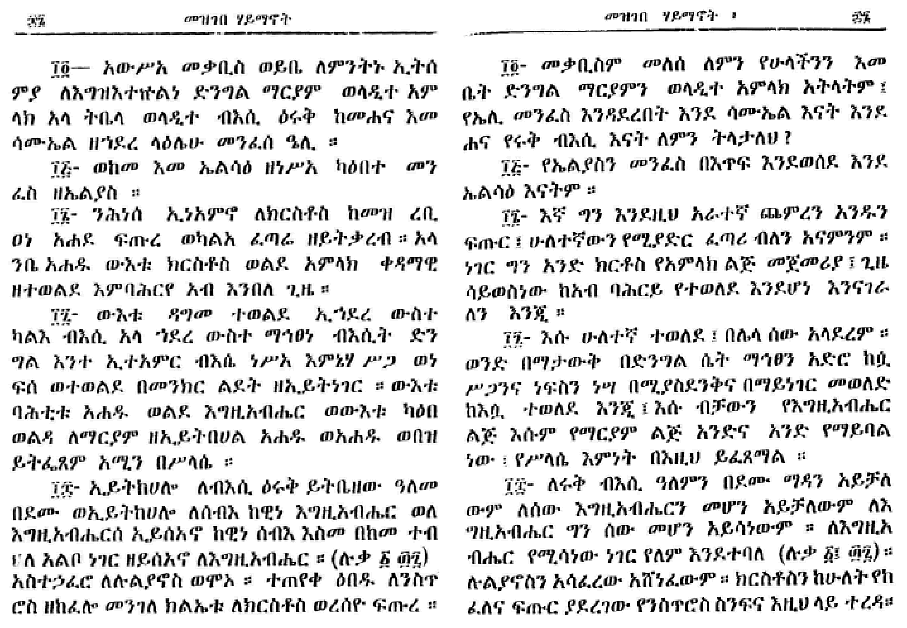 ፵፯ መዝገበ ሃይማኖት
፲፬— አውሥአ መቃቢስ ወይቤ ለምንትኑ ኢትሰ
ምያ ለእግዝእተኵልነ ድንግል ማርያም ወላዲተ አም
ላክ አላ ትቤላ ወላዲተ ብእሲ ዕሩቅ ከመሐና እመ
ሳሙኤል ዘኀደረ ላዕሌሁ መንፈሰ ዔሊ ።
፲፭- ወከመ እመ ኤልሳዕ ዘነሥአ ካዕበተ መን
ፈስ ዘኤልያስ ።
፲፮- ንሕነሰ ኢነአምኖ ለክርስቶስ ከመዝ ረቢ
ዐነ አሐደ ፍጡረ ወካልአ ፈጣሬ ዘይትቃረብ ። አላ
ንቤ አሐዱ ውእቱ ክርስቶስ ወልደ አምላክ ቀዳማዊ
ዘተወልደ እምባሕርየ አብ እንበለ ጊዜ ።
፲፯- ውእቱ ዳግመ ተወልደ ኢኀደረ ውስተ
ካልእ ብእሲ አላ ኀደረ ውስተ ማኅፀነ ብእሲት ድን
ግል እንተ ኢተአምር ብእሴ ነሥአ እምኔሃ ሥጋ ወነ
ፍሰ ወተወልደ በመንክር ልደት ዘኢይትነገር ። ውእቱ
ባሕቲቱ አሐዱ ወልደ እግዚአብሔር ወውእቱ ካዕበ
ወልዳ ለማርያም ዘኢይትበሀል አሐዱ ወአሐዱ ወበዝ
ይትፌጸም አሚን በሥላሴ ።
፲፰- ኢይትከሀሎ ለብእሲ ዕሩቅ ይትቤዘው ዓለመ
በደሙ ወኢይትከሀሎ ለሰብእ ከዊነ እግዚአብሔር ወለ
እግዚአብሔርሰ ኢይሰአኖ ከዊነ ሰብእ እስመ በከመ ተብ
ህለ አልቦ ነገር ዘይሰአኖ ለእግዚአብሔር ። (ሉቃ ፩ ፴፯)
አስተኃፈሮ ለሉልያኖስ ወሞአ ። ተጠየቀ ዕበዱ ለንስጥ
ሮስ ዘከፈሎ መንገለ ክልኤቱ ለክርስቶስ ወረሰዮ ፍጡረ ።
መዝገበ ሃይማኖት ፡ ፵፯
፲፬- መቃቢስም መለሰ ለምን የሁላችንን እመ
ቤት ድንግል ማርያምን ወላዲተ አምላክ አትላትም ፤
የኤሊ መንፈስ እንዳደረበት እንደ ሳሙኤል እናት እንደ
ሐና የሩቅ ብእሲ እናት ለምን ትላታለህ ?
፲፭- የኤልያስን መንፈስ በእጥፍ እንደወሰደ እንደ
ኤልሳዕ እናትም ።
፲፮- እኛ ግን እንደዚህ አራተኛ ጨምረን አንዱን
ፍጡር ፤ ሁለተኛውን የሚያድር ፈጣሪ ብለን አናምንም ።
ነገር ግን አንድ ክርቶስ የአምላክ ልጅ መጀመሪያ ፤ ጊዜ
ሳይወስነው ከአብ ባሕርይ የተወለደ እንደሆነ እንናገራ
ለን እንጂ ።
፲፯- እሱ ሁለተኛ ተወለደ ፤ በሌላ ሰው አላደረም ።
ወንድ በማታውቅ በድንግል ሴት ማኅፀን አድሮ ከሷ
ሥጋንና ነፍስን ነሣ በሚያስደንቅና በማይነገር መወለድ
ከእሷ ተወለደ እንጂ ፤ እሱ ብቻውን የእግዚአብሔር
ልጅ እሱም የማርያም ልጅ አንድና አንድ የማይባል
ነው ፤ የሥላሴ እምነት በእዚህ ይፈጸማል ።
፲፰- ለሩቅ ብእሲ ዓለምን በደሙ ማዳን አይቻለ
ውም ለሰው እግዚአብሔርን መሆን አይቻለውም ለእ
ግዚአብሔር ግን ሰው መሆን አይሳነውም ። ለእግዚአ
ብሔር የሚሳነው ነገር የለም እንደተባለ (ሉቃ ፩፤ ፴፯) ።
ሉልያኖስን አሳፈረው አሸነፈውም ። ክርስቶስን ከሁለት የከ
ፈለና ፍጡር ያደረገው የንስጥሮስ ስንፍና እዚህ ላይ ተረዳ።